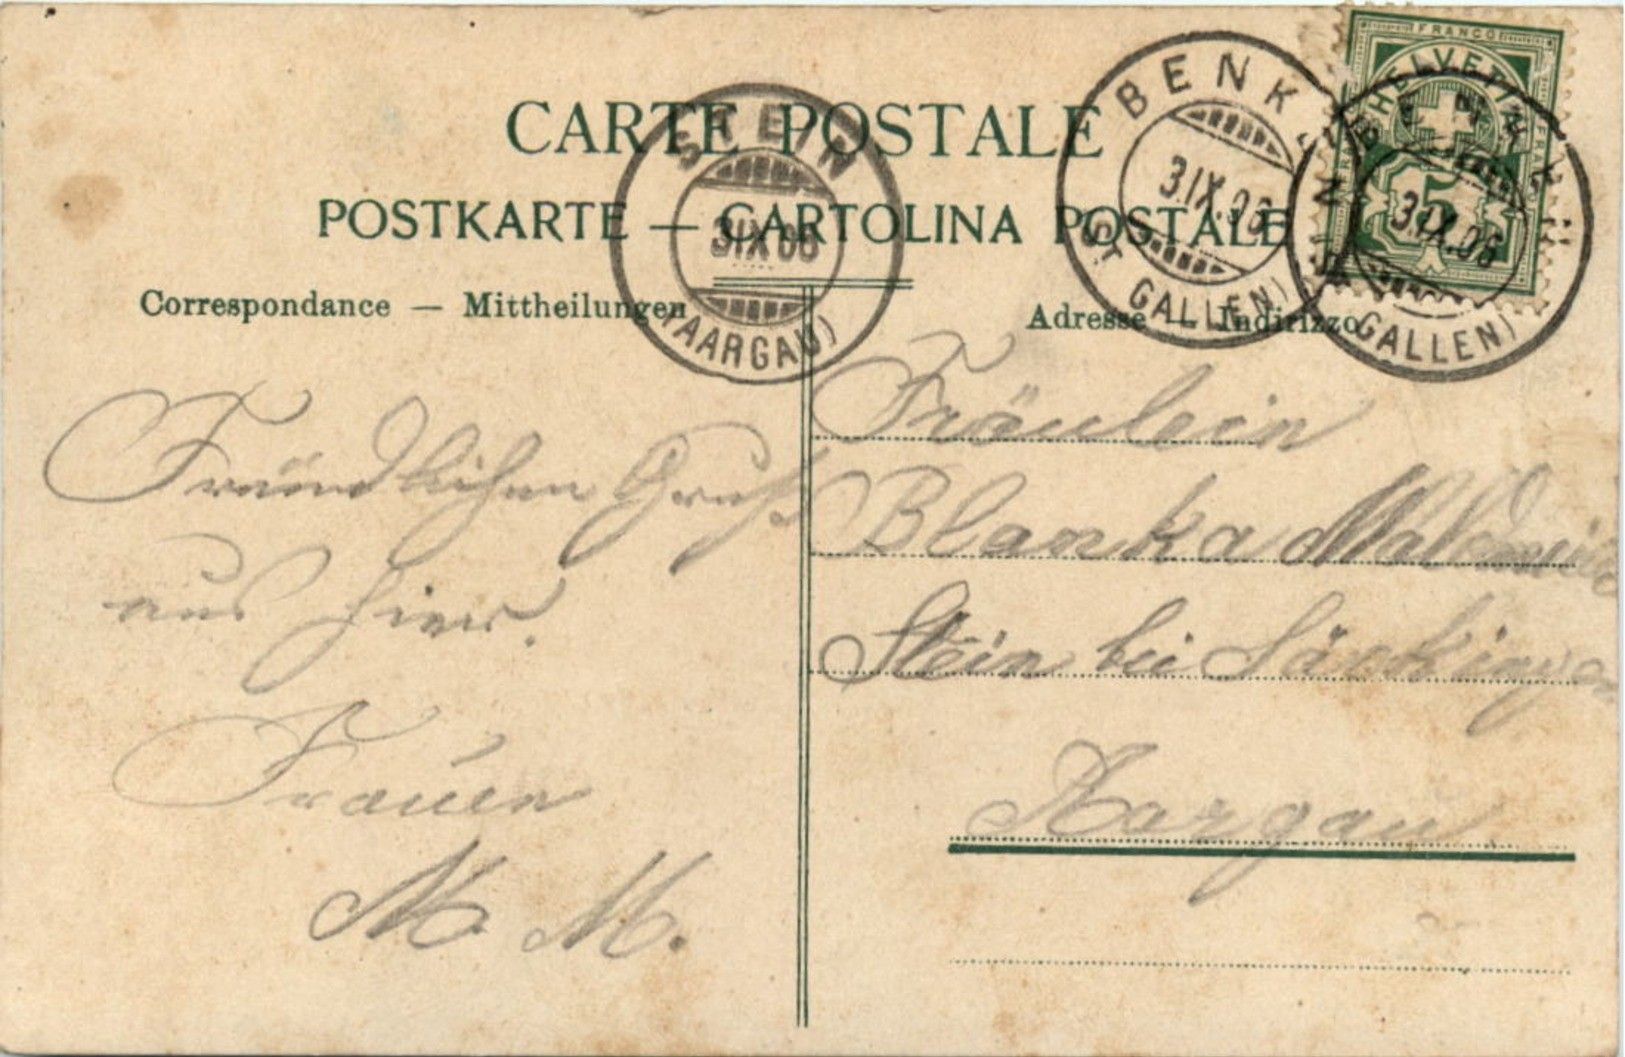 CARTE POSTALE
POSTKARTE — CARTOLINA POSTALE
Correspondance — Mittheilungen
Adresse — Indirizzo
STEIN
3 IX 06
(AARGAU)
BENKEN
3 IX. 06
(ST GALLEN)
BENKEN
3 IX. 06
GALLEN)
FRANCO
HELVETIA
5
FRANCO
Fräundlichen Gruß
aus hier.
M. M.
Fräulein
Blanka
Stein bei Säckingen
Aargau